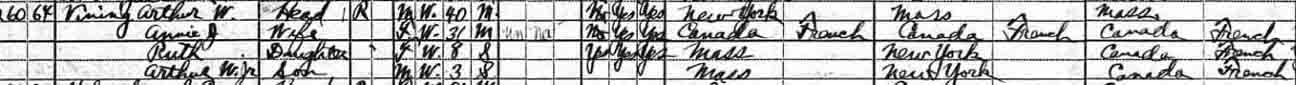 160 64 Vining Arthur W. Head R M W. 40 M. No Yes Yes New York Mass Mass.
Annie J Wife F W. 31 M un na No Yes Yes Canada French Canada French Canada French
Ruth Daughter F W. 8 S Yes Yes Yes Mass New York Canada French
Arthur W. Jr Son M W. 3 S Mass New York Canada French